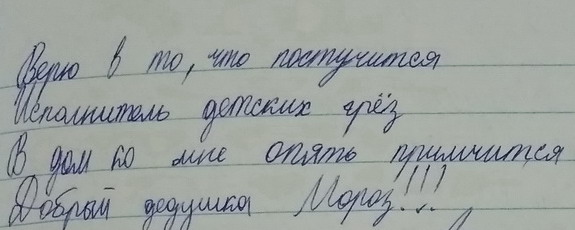 Верю в то, что постучится
Исполнитель детских грёз
В дом ко мне опять примчится
Добрый дедушка Мороз!!!